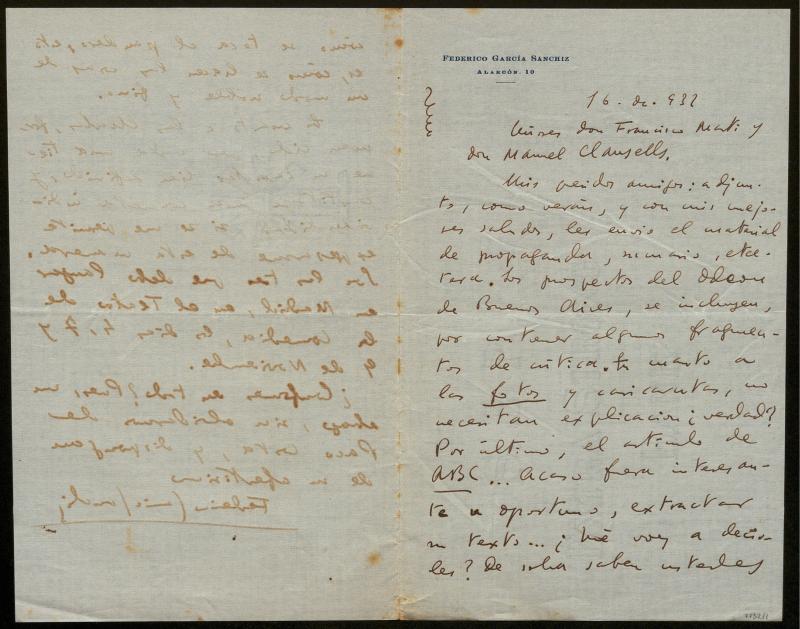 FEDERICO GARCÍA SANCHIZ
ALARCÓN, 10
16. oc. 932
Señores don Francisco Martí y
don Manuel Clausells.
Mis queridos amigos: adjun-
to, como verán, y con mis mejo-
res saludos, les envío el material
de propaganda, sumario, etcé-
tera. Los prospectos del Odeon
de Buenos Aires, se incluyen,
por contener algunos fragmen-
tos de crítica. En cuanto a
las fotos y caricaturas, no
necesitan explicación ¿verdad?
Por último, el artículo de
ABC... Acaso fuera interesan-
te u oportuno, extractar
su texto... ¡Qué voy a decir-
les? De sobra saben ustedes
cómo se toca el pandero, esto
es, cómo se hacen las cosas de
un modo noble y fino.
En cuanto a las charlas, for-
man
es personne de esta manera.
Son las tres que debo lanzar
en Madrid, en el Teatro de
la Comedia, los días 4, 7 y
9 de Noviembre.
¿Conformes en todo? Pues, un
abrazo, sin olvidarnos de
Paco Costa, y dispongan
de su afectísimo
Federico García Sanchiz